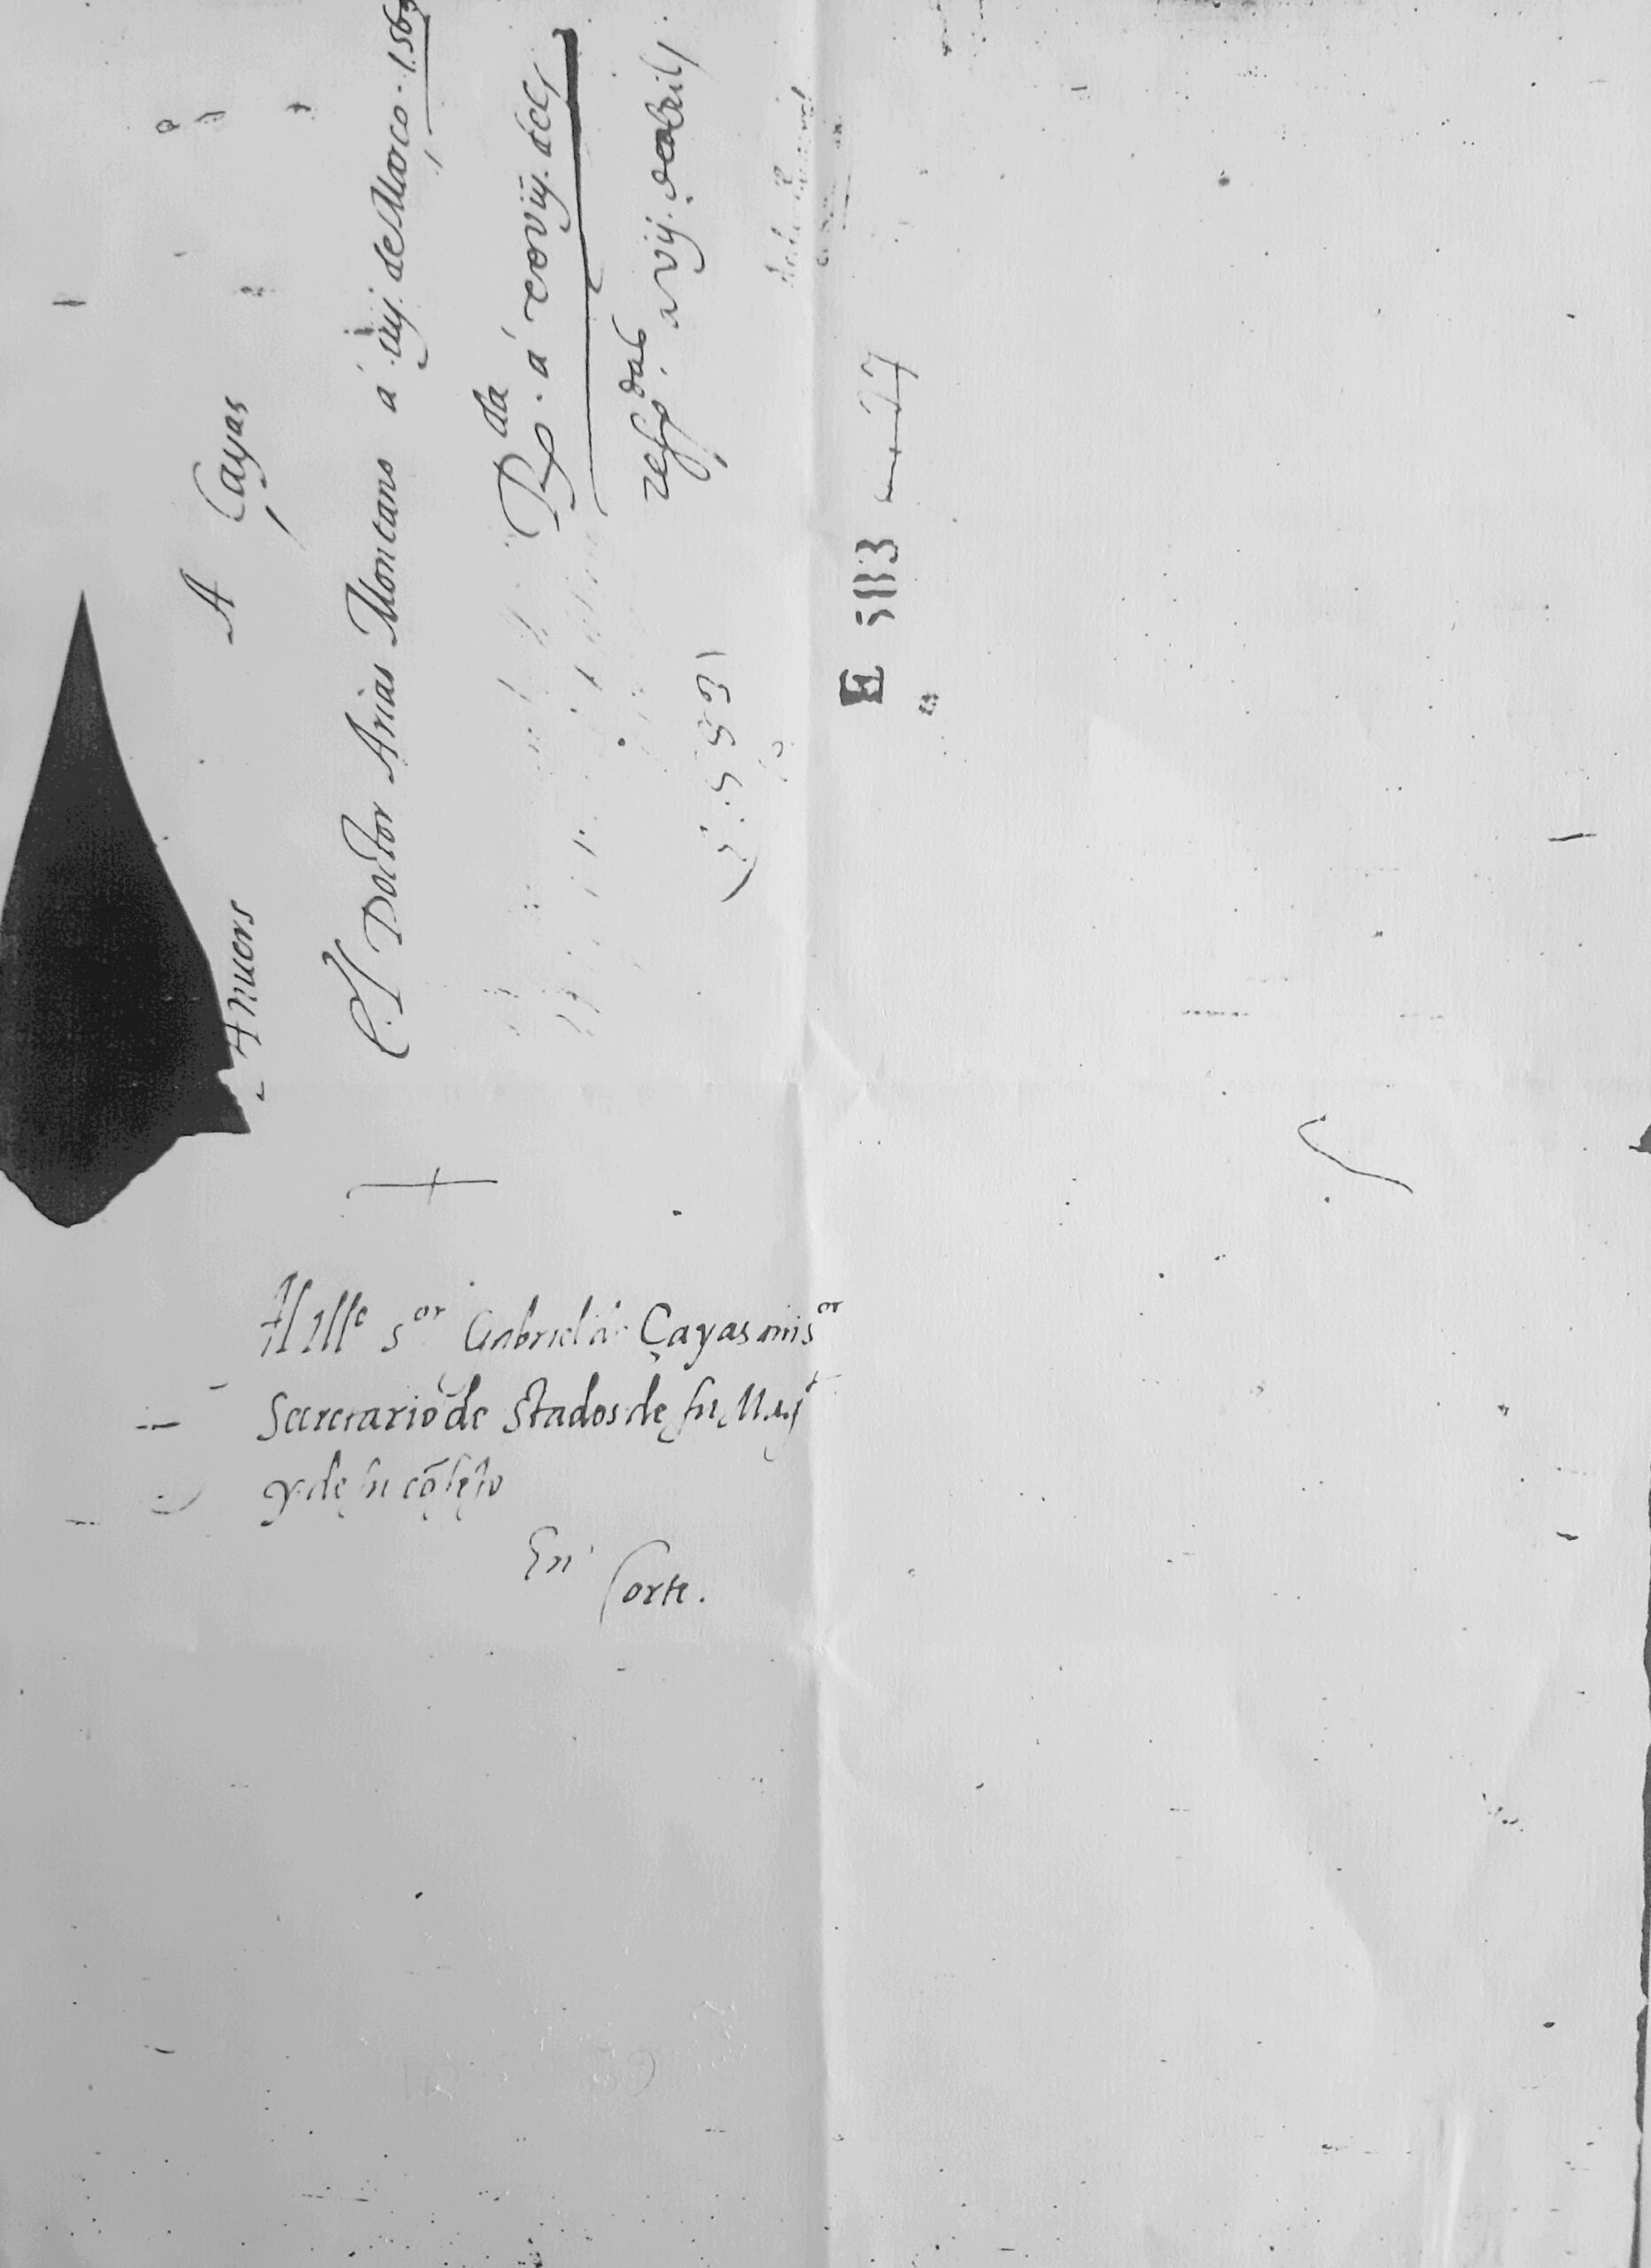 A Cayas
Anuers
El Doctor Arias Montano a iiij. de Março. 1569
R^da. a xxviij. del
respo^das a vij. de abril
E 583 27
Al Ill^e s^or Gabriel de Çayas mi s^or
Secretario de Stados de su Mag^t
y de su cõsejo
En Corte.